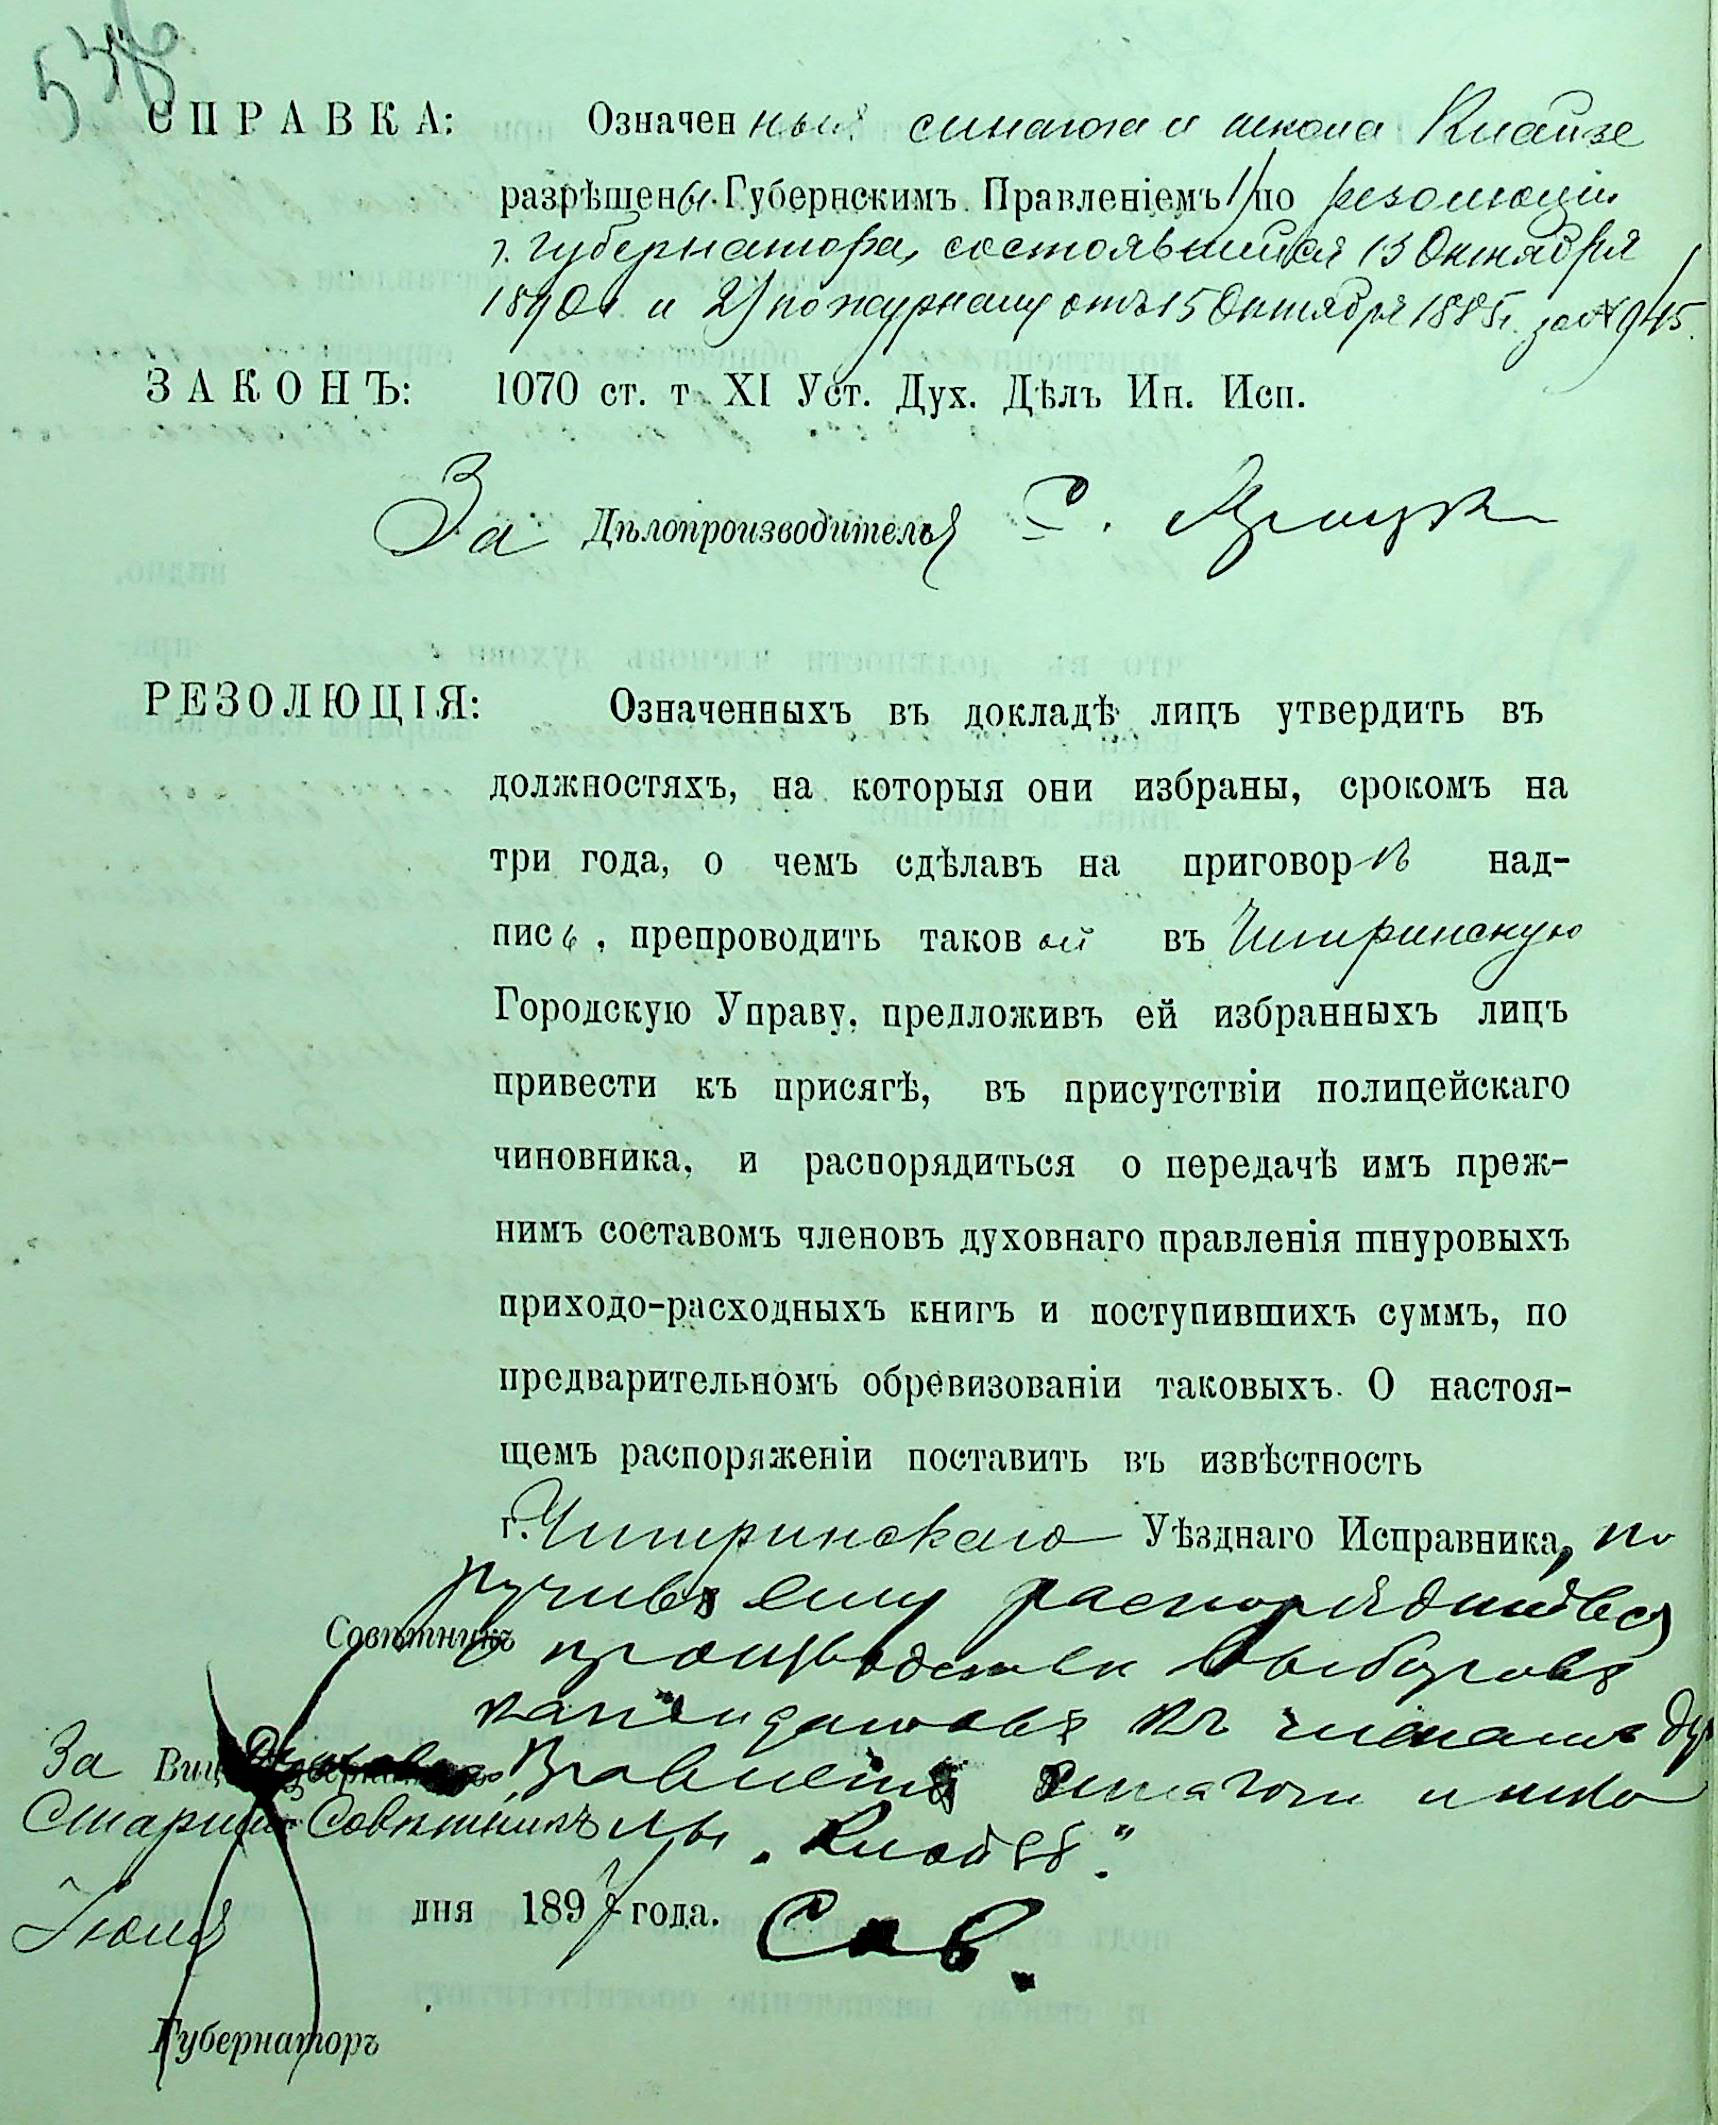 538
СПРАВКА: Означенныя синагога и школа Клайзе
разрѣшены Губернскимъ Правленіемъ 1/ по резолюціи
г. Губернатора, состоявшейся 13 Октября
1890 г. и 2/ по журналу отъ 15 Октября 1885 г. за № 945.
ЗАКОНЪ: 1070 ст. т. XI Уст. Дух. Дѣлъ Ин. Исп.
За Дѣлопроизводителя С.
РЕЗОЛЮЦІЯ: Означенныхъ въ докладѣ лицъ утвердить въ
должностяхъ, на которыя они избраны, срокомъ на
три года, о чемъ сдѣлавъ на приговорѣ над-
пись, препроводить таковой въ
Городскую Управу, предложивъ ей избранныхъ лицъ
привести къ присягѣ, въ присутствіи полицейскаго
чиновника, и распорядиться о передачѣ имъ преж-
нимъ составомъ членовъ духовнаго правленія шнуровыхъ
приходо-расходныхъ книгъ и поступившихъ суммъ, по
предварительномъ обревизованіи таковыхъ. О настоя-
щемъ распоряженіи поставить въ извѣстность
г. Уѣзднаго Исправника, по
ручивъ ему распорядиться
Совѣтникъ производствомъ выборовъ
кандидатовъ къ членамъ дух
За Вице-Губернатора Правленія синагоги и шко
Старшій Совѣтникъ лы „Клойзъ".
Іюля дня 1897 года.
Губернаторъ